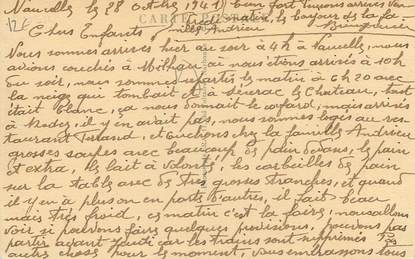 Naucelle le 28 Octobre 1941 bien fort
CARTE
le bonjour de la fa-
12€ Chers Enfants, mille Andrieu
Nous sommes arrivés hier au soir à 4h à Naucelle, nous
avions couchés à Milhau où nous étions arrivés à 10h
du soir, nous sommes repartis le matin à 6h20 avec
la neige qui tombait et à Séverac le Château, tout
était blanc, ça nous donnait le cafard, mais arrivés
à Rodez, il y en avait pas, nous sommes logés au res-
taurant et mangeons chez la famille Andrieu
grosses soupes avec beaucoup de pain dedans, le pain
est extra, le lait à volonté, les corbeilles de pain
sur la table avec de très grosses tranches, et quand
il y en à plus on en porte d'autres, il fait beau
mais très froid, ce matin c'est la foire, nous allons
voir si pourrons faire quelques provisions, pouvons pas
partir avant Jeudi car les trains sont supprimés
autre chose pour le moment, vous embrassons tous